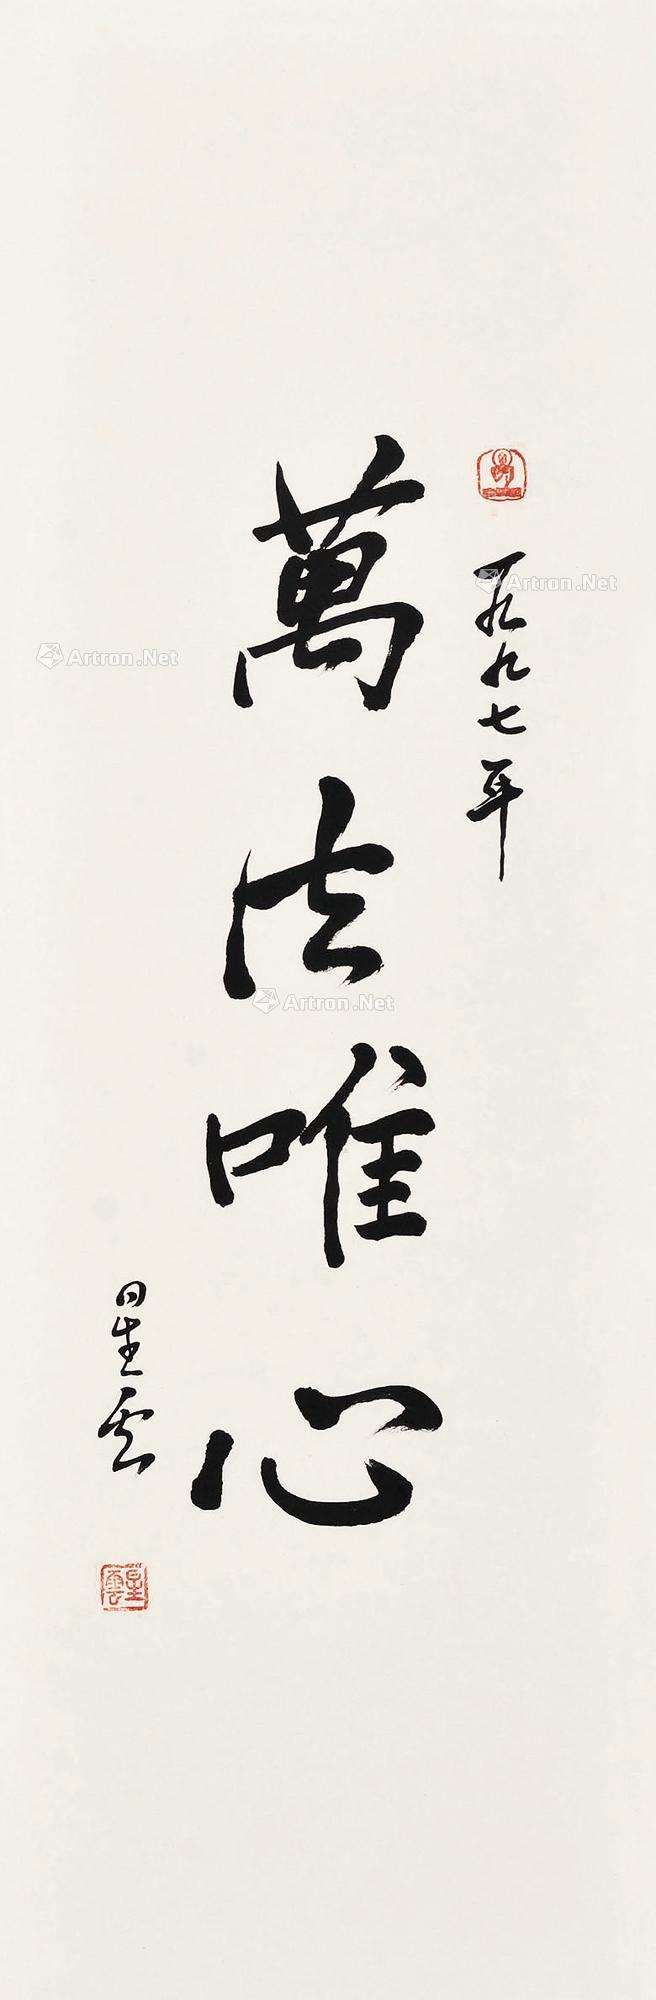 一九九七年
萬法唯心
星雲
星雲
Artron.Net
Artron.Net
Artron.Net